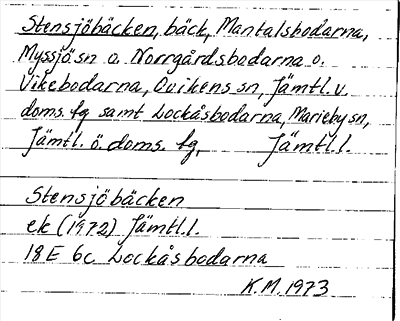 Stensjöbäcken, bäck, Mantalsbodarna,
Myssjö sn o. Norrgårdsbodarna o.
Vikebodarna, Ovikens sn, Jämtl. v.
doms. fg samt Lockåsbodarna, Marieby sn,
Jämtl. ö. doms. fg, Jämtl. l.
Stensjöbäcken
ek (1972) Jämtl. l.
18E 6c Lockåsbodarna
K.M. 1973